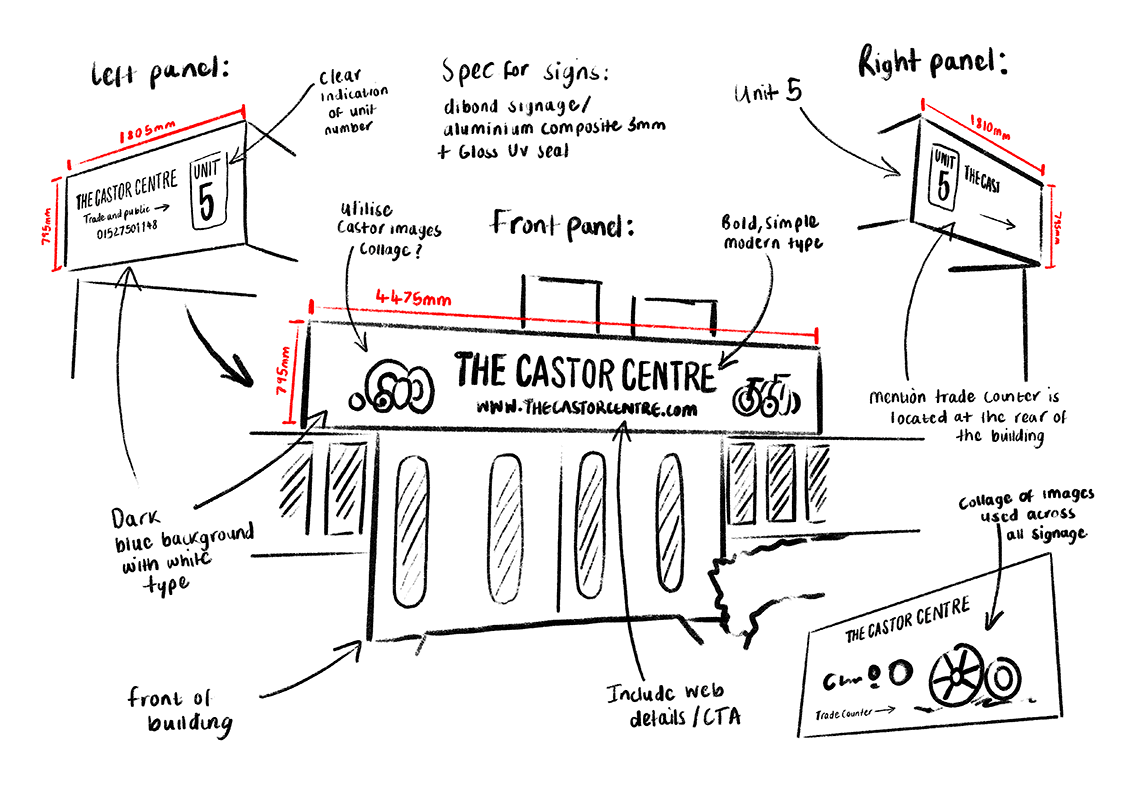 Left panel:
1805mm
795mm
THE CASTOR CENTRE
Trade and public →
01527501148
UNIT
5
Clear
indication
of unit
number
Spec for signs:
dibond signage/
aluminium composite 3mm
+ Gloss UV seal
Right panel:
Unit 5
1810mm
795mm
UNIT
5
THE CAST
→
Mention trade counter is
located at the rear of
the building
Front panel:
Utilise
Castor images
collage?
Bold, simple
modern type
4475mm
795mm
THE CASTOR CENTRE
WWW.THECASTORCENTRE.COM
Dark
blue background
with white
type
front of
building
Include web
details/CTA
Collage of images
used across
all signage
THE CASTOR CENTRE
Trade Counter →